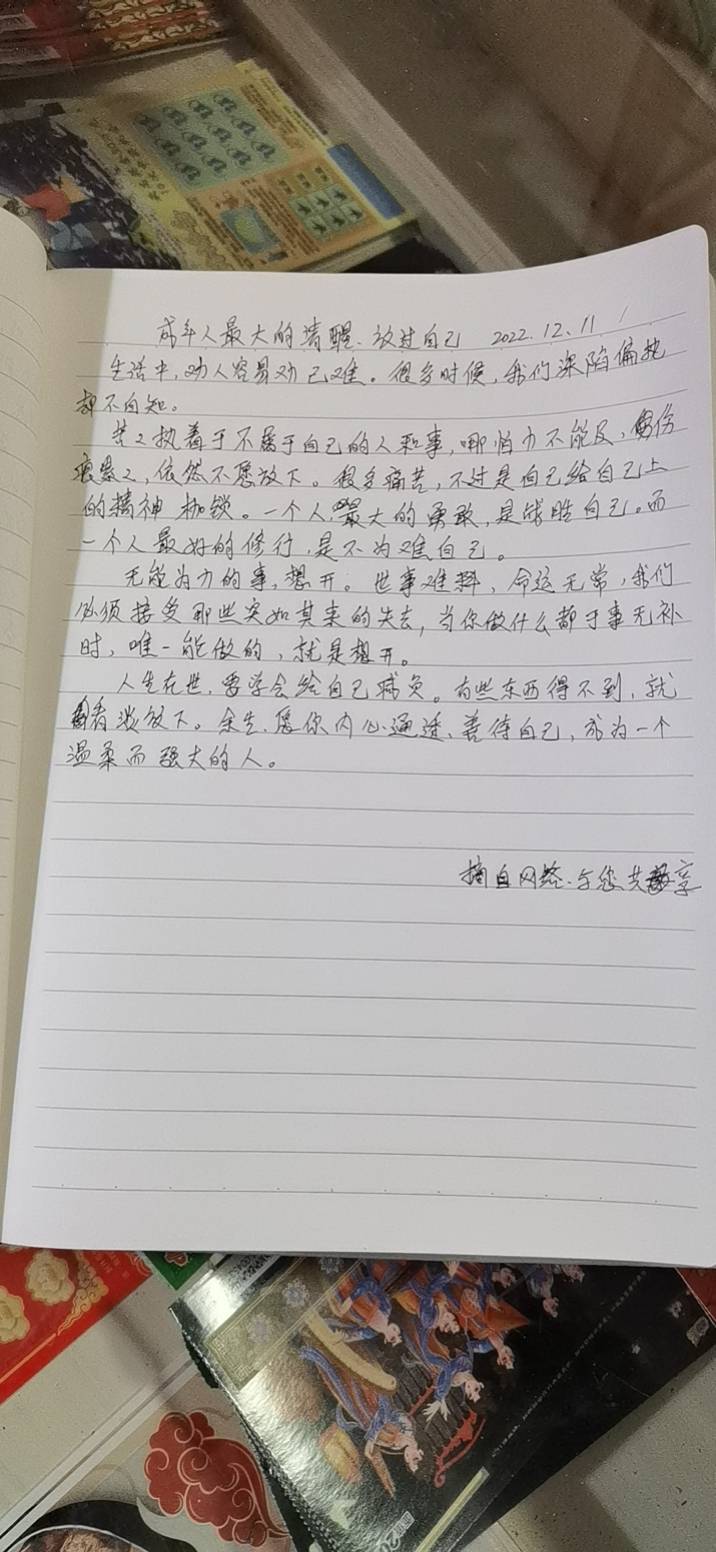 成年人最大的清醒、放过自己 2022.12.11
生活中,劝人容易劝己难。很多时候,我们深陷偏执
却不自知。
苦苦执着于不属于自己的人和事,哪怕力不能及,伤
痕累累,依然不愿放下。很多痛苦,不过是自己给自己上
的精神枷锁。一个人最大的勇敢,是战胜自己。而
一个人最好的修行,是不为难自己。
无能为力的事,想开。世事难料,命运无常,我们
必须接受那些突如其来的失去,当你做什么都于事无补
时,唯一能做的,就是想开。
人生在世,要学会给自己减负。有些东西得不到,就
看淡放下。余生,愿你内心通透、善待自己,成为一个
温柔而强大的人。
摘自网络.与您共享